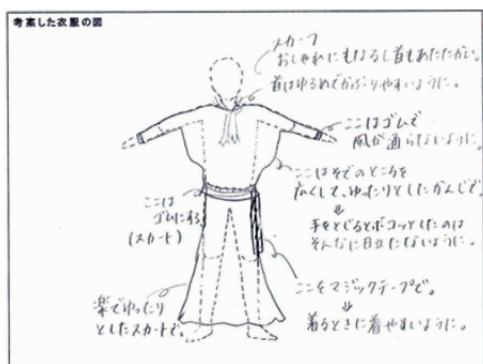 考案した衣服の図
スカーフ
おしゃれにもなるし首もあたたかい。
首はゆるめでかぶりやすいように。
ここはゴムで
風が通らないように。
ここはそでのところを
広くして、ゆったりとしたかんじで。
⇓
手をとじるとボコッとしたのは
そんなに目立たないように。
ここは
ゴムにする
(スカート)
ここをマジックテープで。
⇓
着るときに着やすいように。
楽でゆったり
としたスカートで。